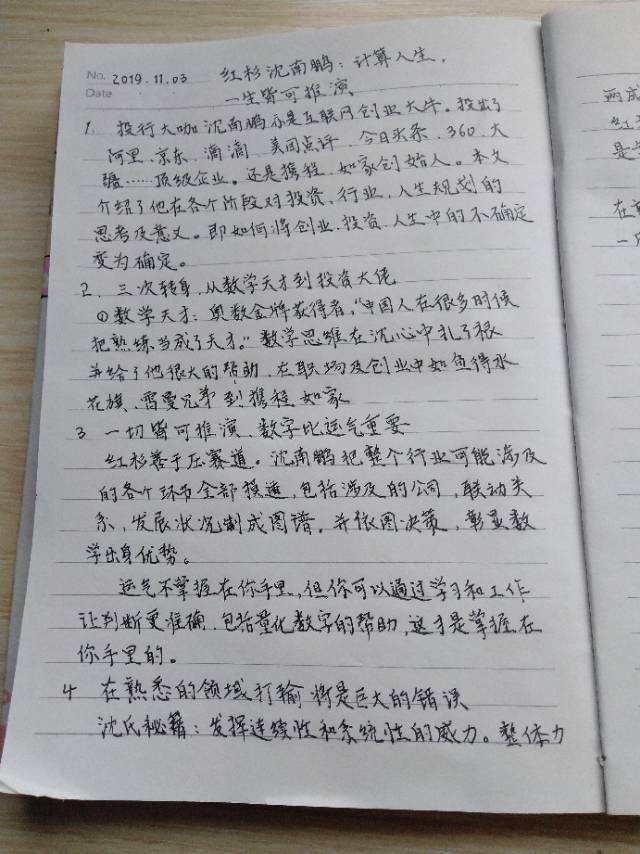 No. 2019.11.03 红杉沈南鹏：计算人生，
Date 一生皆可推演
1. 投行大咖沈南鹏亦是互联网创业大牛。投出了
阿里、京东、滴滴、美团点评、今日头条、360、大
疆……顶级企业。还是携程、如家创始人。本文
介绍了他在各个阶段对投资、行业、人生规划的
思考及意义。即如何将创业、投资、人生中的不确定
变为确定。
2. 三次转身，从数学天才到投资大佬
①数学天才：奥数金牌获得者，“中国人在很多时候
把熟练当成了天才。”数学思维在沈心中扎了根
并给了他很大的帮助，在职场及创业中如鱼得水
花旗、雷曼兄弟到携程、如家
3 一切皆可推演、数字比运气重要
红杉善于压赛道。沈南鹏把整个行业可能涉及
的各个环节全部摸透，包括涉及的公司，联动关
系，发展状况制成图谱，并依图决策，彰显数
学出身优势。
运气不掌握在你手里，但你可以通过学习和工作
让判断更准确，包括量化数字的帮助，这才是掌握在
你手里的。
4 在熟悉的领域打输将是巨大的错误
沈氏秘籍：发挥连续性和系统性的威力。整体力
两
红
是
在
一